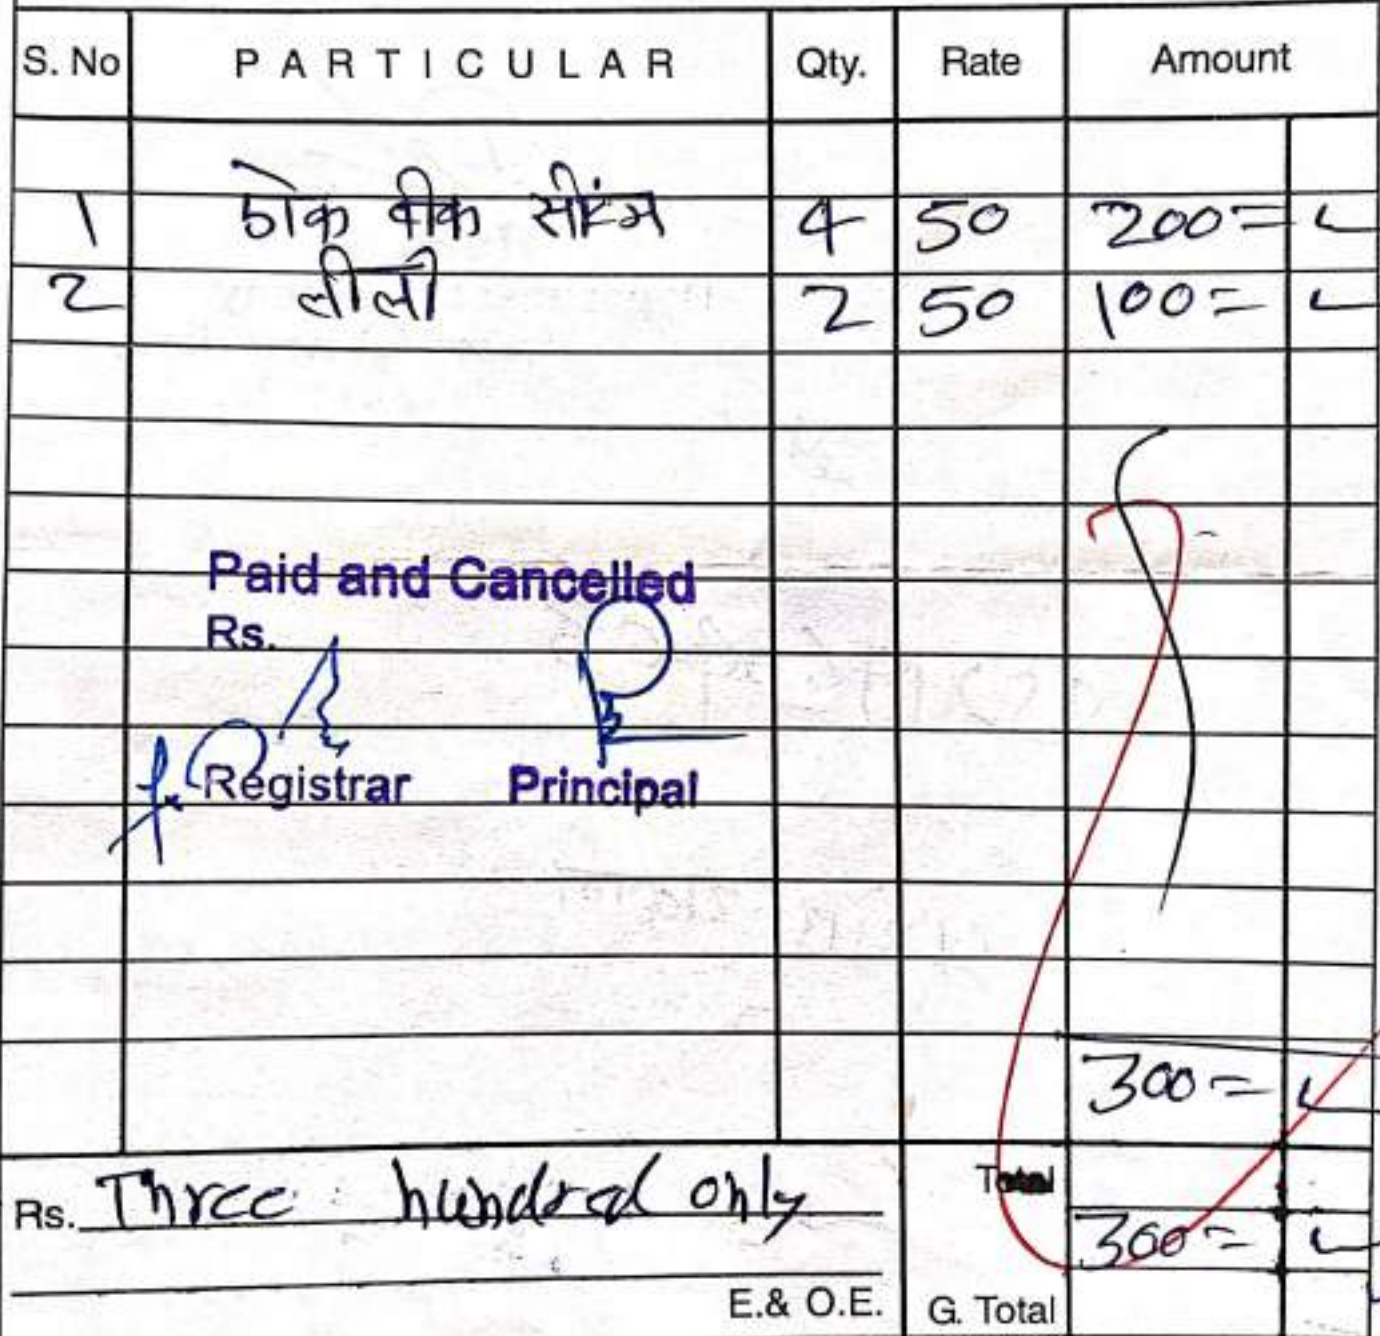 S. No PARTICULAR Qty. Rate Amount
1 डोक वीक सीटंग 4 50 200=
2 लीली 2 50 100=
Paid and Cancelled
Rs.
Registrar Principal
300=
Rs. Three hundred only Total
300=
E.& O.E. G. Total